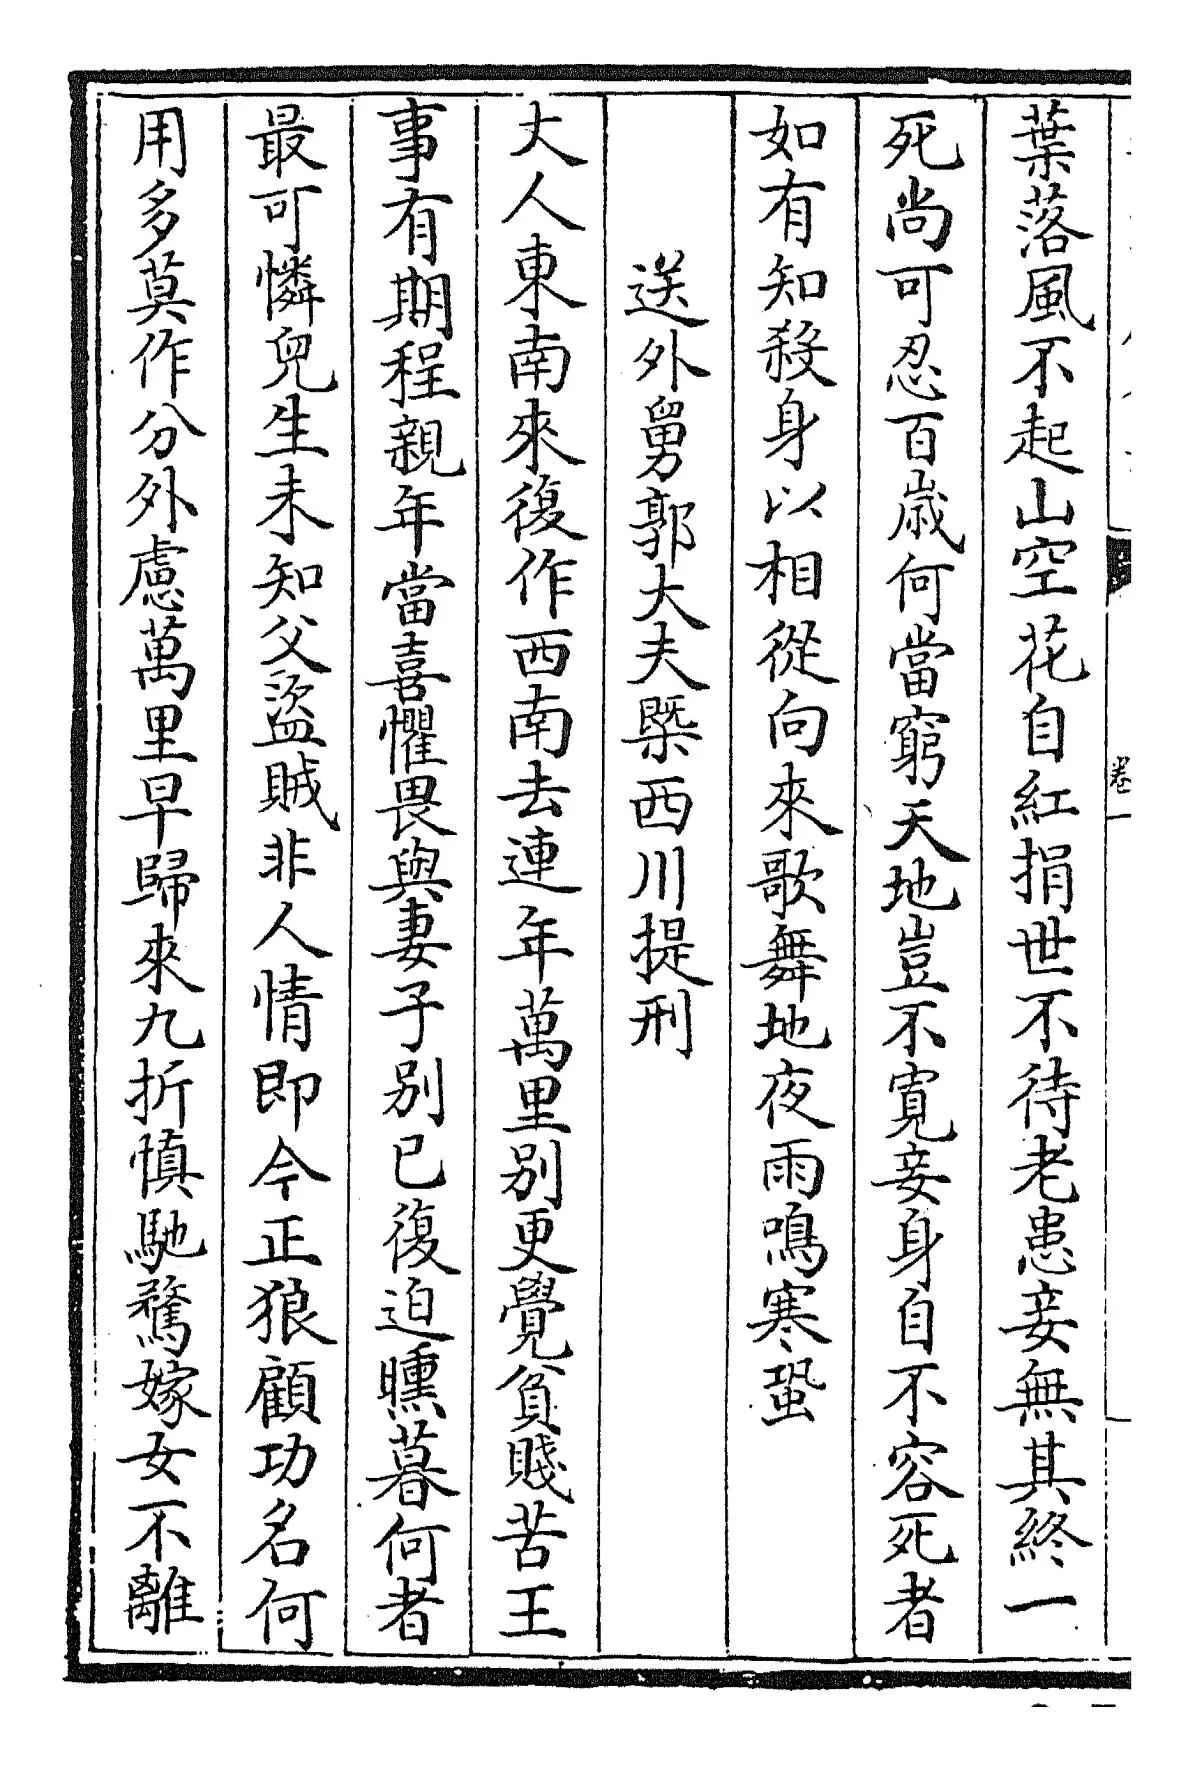 葉落風不起山空花自紅捐世不待老患妾無其終一
死尚可忍百歳何當窮天地豈不寛妾身自不容死者
如有知殺身以相從向來歌舞地夜雨鳴寒蛩
送外舅郭大夫槩西川提刑
丈人東南來復作西南去連年萬里別更覺貧賤苦王
事有期程親年當喜懼畏與妻子别已復迫曛暮何者
最可憐兒生未知父盜賊非人情即今正狼顧功名何
用多莫作分外慮萬里早歸來九折慎馳騖嫁女不離
卷一